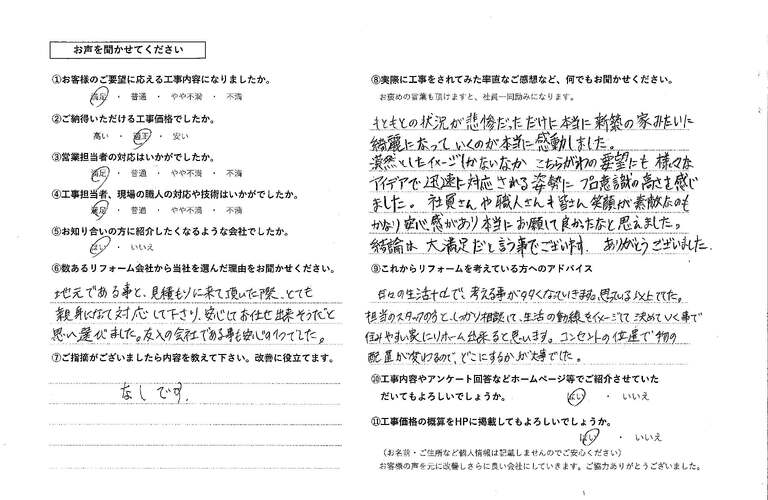 お声を聞かせてください
①お客様のご要望に応える工事内容になりましたか。
満足 ・ 普通 ・ やや不満 ・ 不満
②ご納得いただける工事価格でしたか。
高い ・ 適正 ・ 安い
③営業担当者の対応はいかがでしたか。
満足 ・ 普通 ・ やや不満 ・ 不満
④工事担当者、現場の職人の対応や技術はいかがでしたか。
満足 ・ 普通 ・ やや不満 ・ 不満
⑤お知り合いの方に紹介したくなるような会社でしたか。
はい ・ いいえ
⑥数あるリフォーム会社から当社を選んだ理由をお聞かせください。
地元である事と、見積もりに来て頂いた際、とても
親身になって対応して下さり、安心してお任せ出来そうだと
思い選びました。友人の会社である事も安心の1つでした。
⑦ご指摘がございましたら内容を教えて下さい。改善に役立てます。
なしです。
⑧実際に工事をされてみた率直なご感想など、何でもお聞かせください。
お褒めの言葉も頂けますと、社員一同励みになります。
もともとの状況が悲惨だっただけに本当に新築の家みたいに
綺麗になっていくのが本当に感動しました。
漠然としたイメージしかないなか こちらがわの要望にも様々な
アイデアで迅速に対応される姿勢に プロ意識の高さを感じ
ました。社員さんや職人さんも皆さん笑顔が素敵なのも
かなり安心感があり本当にお願して良かったなと思えました。
結論は 大満足だと言う事でございます。ありがとうございました。
⑨これからリフォームを考えている方へのアドバイス
日々の生活+αで、考える事が多くなっていきます。思っている以上でした。
担当のスタッフの方と、しっかり相談して、生活の動線をイメージして決めていく事で
住みやすい家にリホーム出来ると思います。コンセントの位置で物の
配置が変わるので、どこにするかが大事でした。
⑩工事内容やアンケート回答などホームページ等でご紹介させていた
だいてもよろしいでしょうか。 はい ・ いいえ
⑪工事価格の概算をHPに掲載してもよろしいでしょうか。
はい ・ いいえ
（お名前・ご住所など個人情報は記載しませんのでご安心ください）
お客様の声を元に改善しさらに良い会社にしていきます。ご協力ありがとうございました。